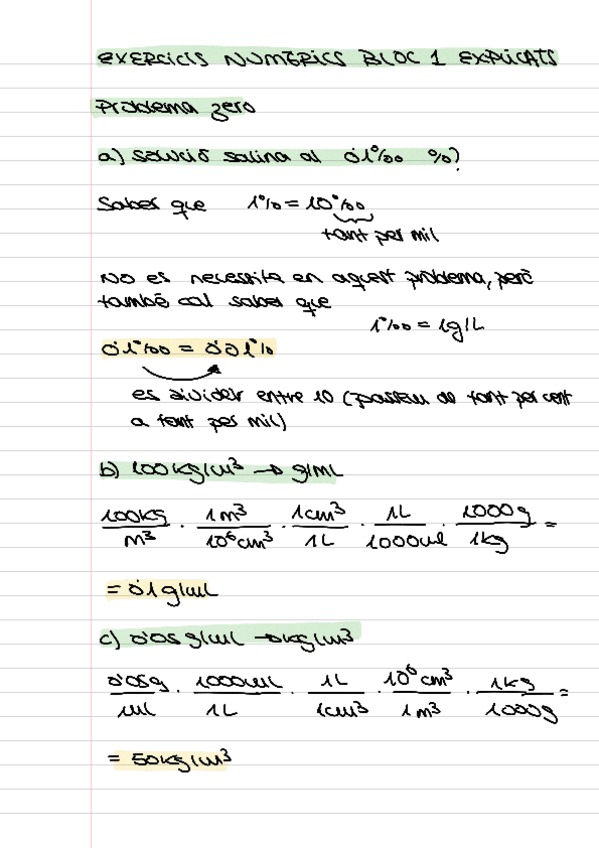 EXERCICIS NUMÈRICS BLOC 1 EXPLICATS
Problema zero
a) Solució salina al 0'1‰ %?
Saber que 1% = 10‰
tant per mil
No es necessita en aquest problema, però
també cal saber que
1‰ = 1g/L
0'1‰ = 0'01%
es divideix entre 10 (passem de tant per cent
a tant per mil)
b) 100kg/m³ → g/mL
100kg/m³ · 1m³/10⁶cm³ · 1cm³/1L · 1L/1000ml · 1000g/1kg =
= 0'1g/ml
c) 0'05g/ml → kg/m³
0'05g/ml · 1000ml/1L · 1L/1cm³ · 10⁶cm³/1m³ · 1kg/1000g =
= 50kg/m³